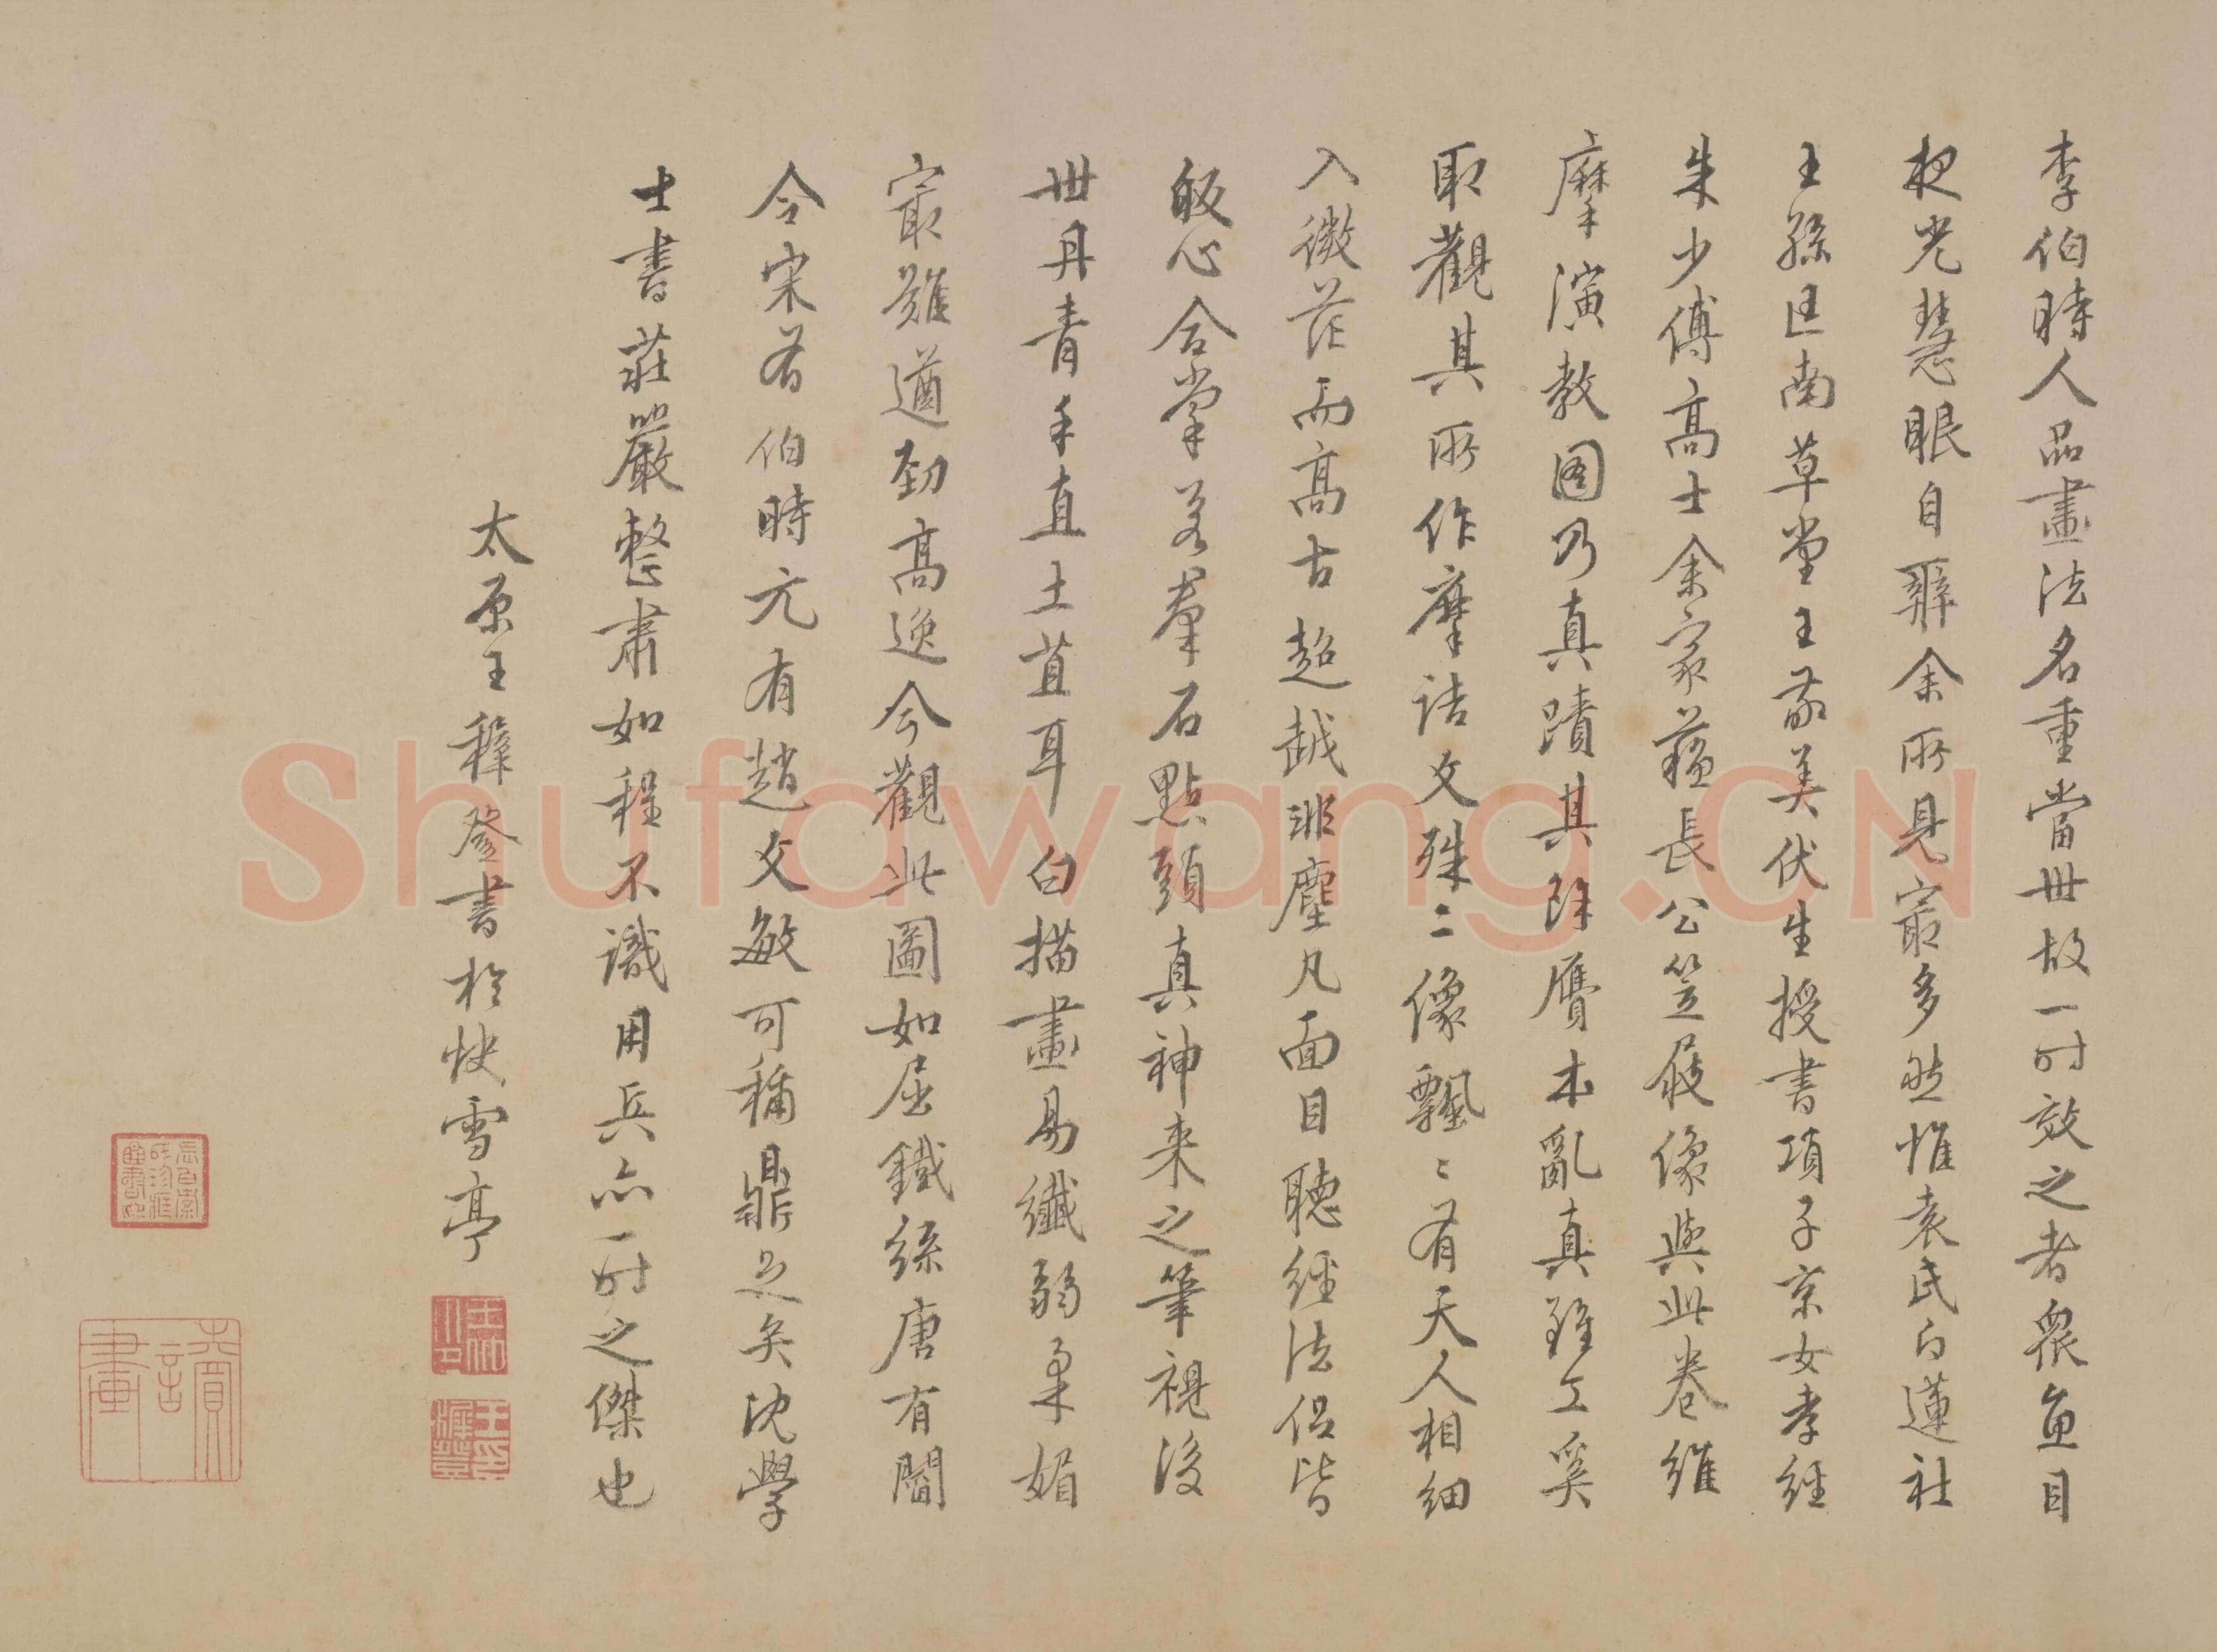 李伯時人品畫法名重當世故一时效之者衆魚目
夜光慧眼自辨余所見寂多然惟袁氏白蓮社
王孫匡南草堂王敬美伏生授書項子京女孝經
朱少傅高士余家藏長公笠屐像與此卷維
摩演教图乃真蹟其餘贋本亂真雖工奚
取觀其所作摩詰文殊二像飄〻有天人相細
入微茫而高古超越非塵凡面目聽經法侶皆
皈心合掌若羣石點頭真神来之筆視後
世丹青手直土苴耳白描畫易纖弱柔媚
寂難遒勁高逸今觀此圖如屈鐵絲唐有閻
令宋有伯時元有趙文敏可稱鼎足矣沈學
士書莊嚴整肅如程不識用兵亦一时之傑也
太原王穉登書於快雪亭
王印穉登
讀畫
Shufawang.CN